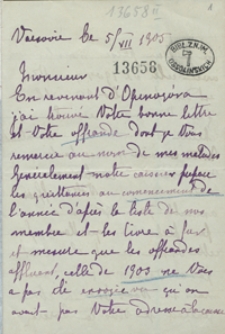 13658 II
1
Varsovie le 5/VII 1905
BIBL. NAR.
13658
Monsieur
En revenant d'Opinogóra
j'ai trouvé Votre bonne lettre
et Votre offrande dont je Vous
remercie au nom de mes malades
Generalement notre caissier prépare
les quittances au commencement de
l'année d'après la liste de nos
membre et les livre à fur
et mesure que les offrandes
affluent, celle de 1905 ne Vous
a pas été envoyée vu qu'on
avait pas Votre adresse à la caisse